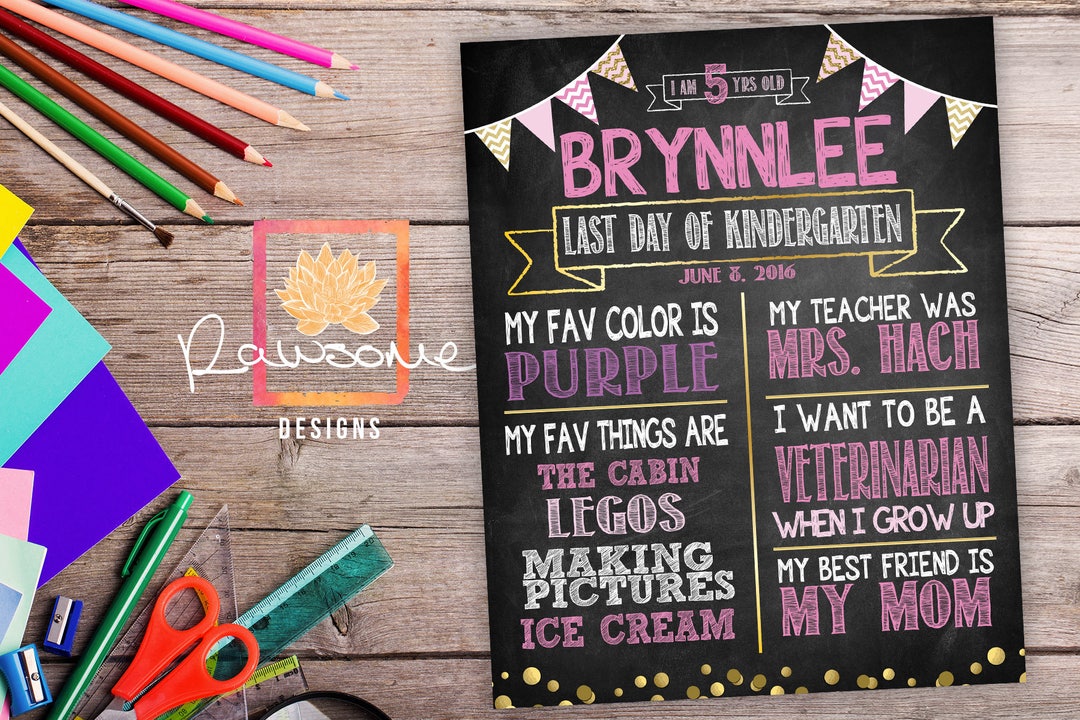 I AM 5 YRS OLD
BRYNNLEE
LAST DAY OF KINDERGARTEN
JUNE 8, 2016
MY FAV COLOR IS
PURPLE
MY FAV THINGS ARE
THE CABIN
LEGOS
MAKING
PICTURES
ICE CREAM
MY TEACHER WAS
MRS. HACH
I WANT TO BE A
VETERINARIAN
WHEN I GROW UP
MY BEST FRIEND IS
MY MOM
Rawsome
DESIGNS